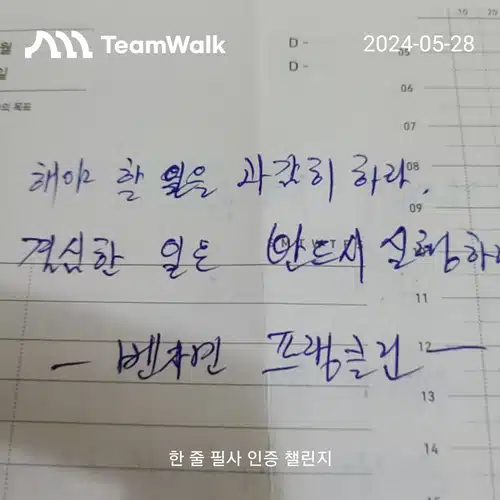 TeamWalk
2024-05-28
월
일
의 목표
D -
D -
18
20
05
06
07
08
09
11
12
13
14
해야 할 일을 과감히 하라.
결심한 일은 반드시 실행하라
- 벤자민 프랭클린 -
한 줄 필사 인증 챌린지